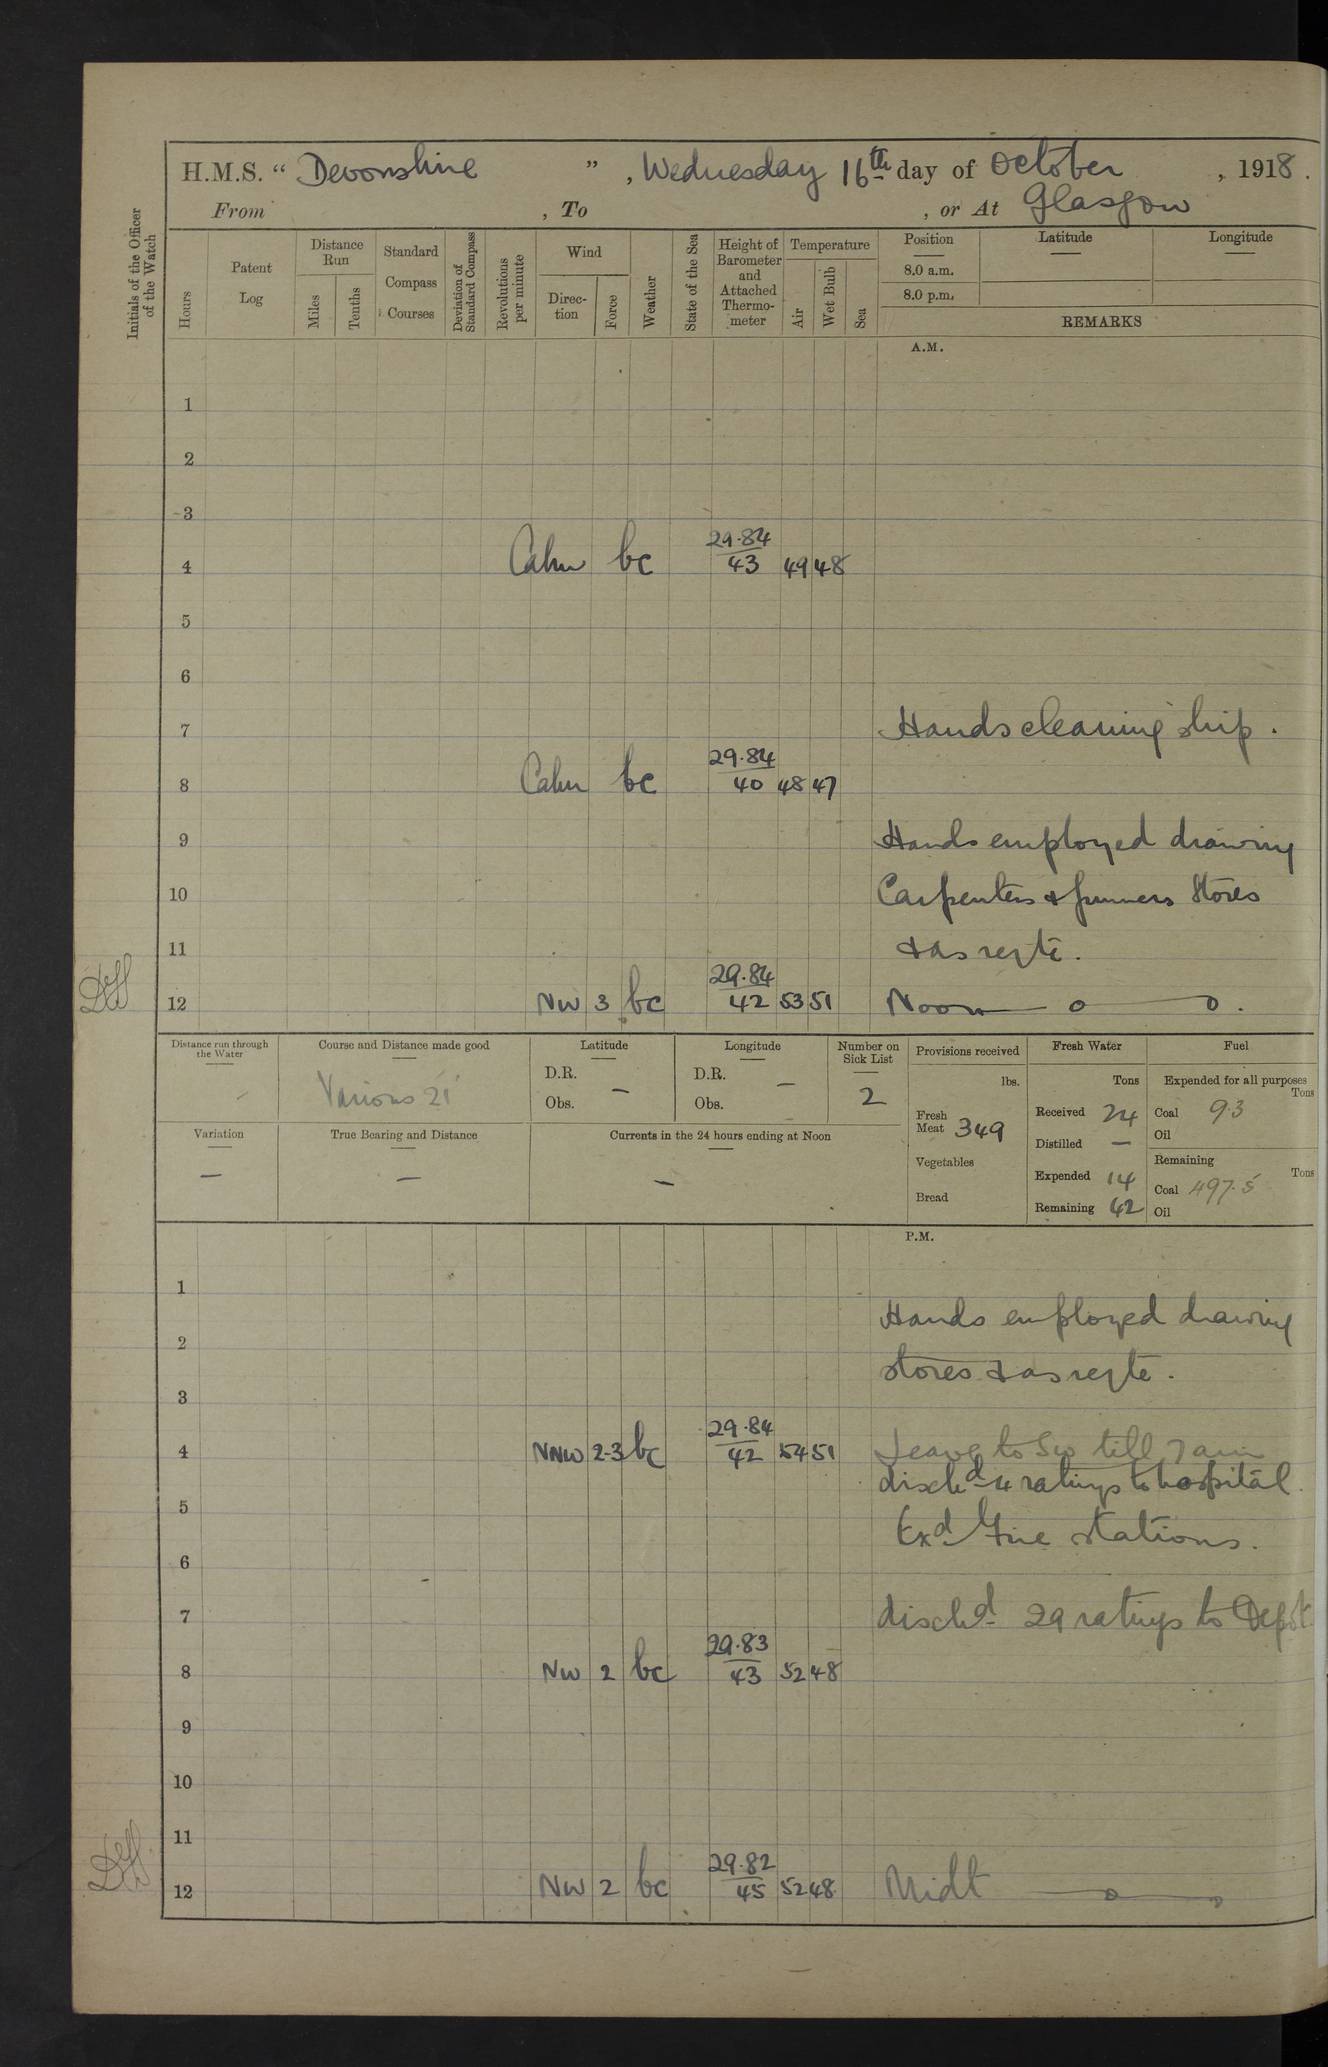 H.M.S. “ Devonshire ” , Wednesday 16th day of October , 1918 .
From , To , or At Glasgow
Initials of the Officer of the Watch
Hours
Patent Log
Distance Run
Miles
Tenths
Standard Compass Courses
Deviation of Standard Compass
Revolutions per minute
Wind
Direc-tion
Force
Weather
State of the Sea
Height of Barometer and Attached Thermo-meter
Temperature
Air
Wet Bulb
Sea
Position Latitude Longitude
8.0 a.m.
8.0 p.m.
REMARKS
A.M.
1
2
3
29.84
4 Calm bc 43 49 48
5
6
7 Hands cleaning ship .
29.84
8 Calm bc 40 48 47
9 Hands employed drawing
10 Carpenters & Gunners Stores
11 & as reqte .
29.84
12 NW 3 bc 42 53 51 Noon .
Distance run through the Water
Course and Distance made good
Various 21
Latitude
D.R.
Obs.
—
Longitude
D.R.
Obs.
—
Number on Sick List
2
Provisions received
lbs.
Fresh Meat 349
Vegetables
Bread
Fresh Water
Tons
Received 24
Distilled —
Expended 14
Remaining 42
Fuel
Expended for all purposes
Tons
Coal 9.3
Oil
Remaining
Tons
Coal 497.5
Oil
Variation
—
True Bearing and Distance
—
Currents in the 24 hours ending at Noon
—
P.M.
1
Hands employed drawing
2
stores & as reqte .
3
29.84
4 NNW 2-3 bc 42 54 51 Leave to SW till 7 am
dischd 4 ratings to hospital .
5
Exd Fire stations .
6
7 dischd 29 ratings to Depot
29.83
8 NW 2 bc 43 52 48
9
10
11
29.82
12 NW 2 bc 45 52 48 Midt